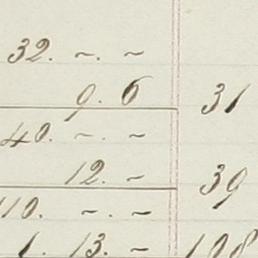 32. ~. ~
9. 6 31
40. ~. ~
12. ~ 39
110. ~. ~
1. 13. ~ 108